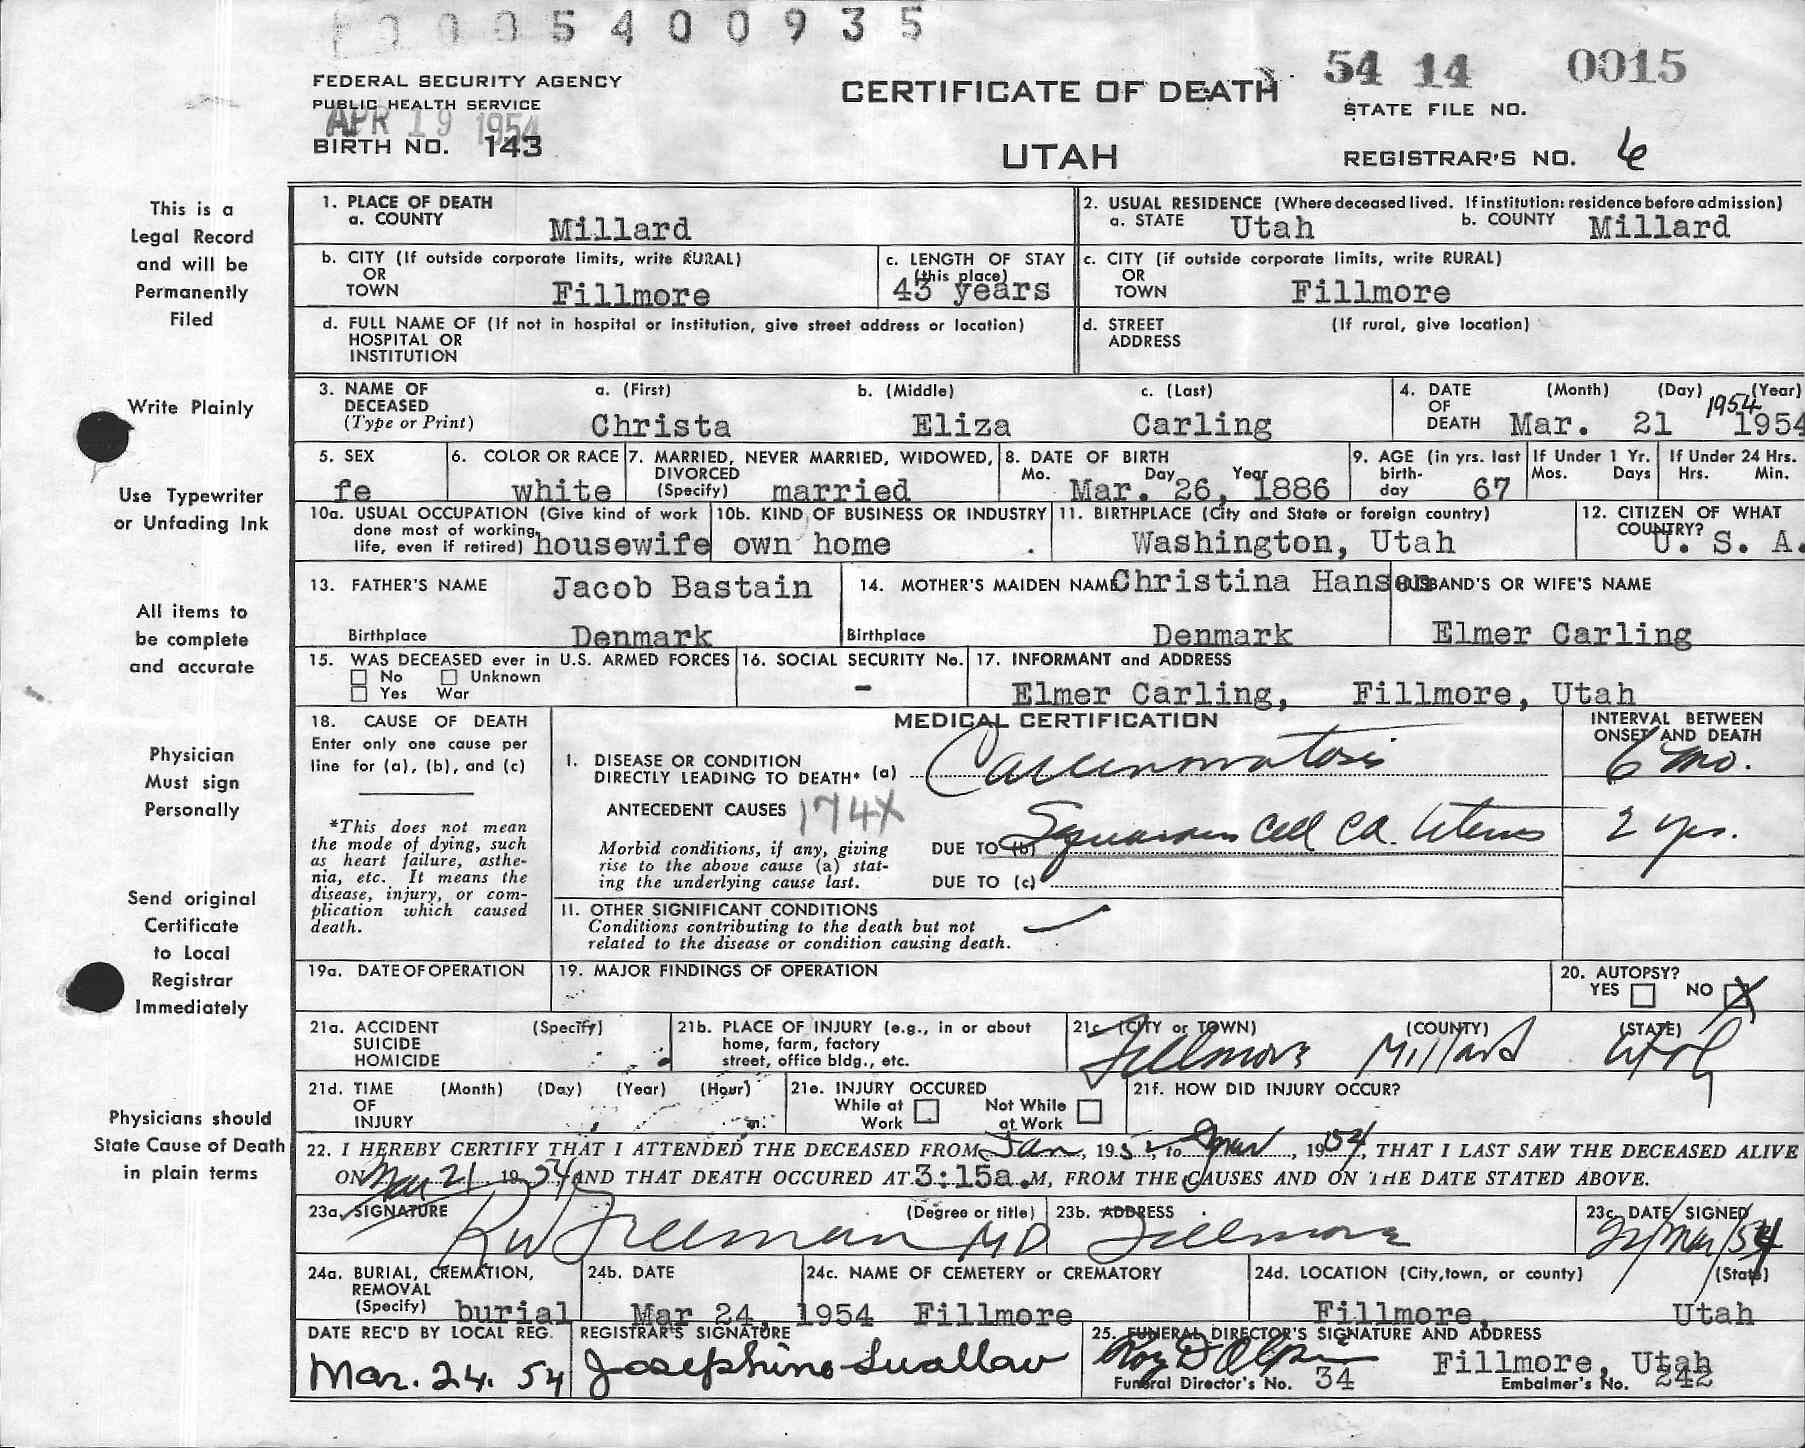 0005400935
54 14 0015
FEDERAL SECURITY AGENCY
PUBLIC HEALTH SERVICE
APR 19 1954
BIRTH NO. 143
CERTIFICATE OF DEATH
UTAH
STATE FILE NO.
REGISTRAR'S NO. 6
This is a
Legal Record
and will be
Permanently
Filed
Write Plainly
Use Typewriter
or Unfading Ink
All items to
be complete
and accurate
Physician
Must sign
Personally
Send original
Certificate
to Local
Registrar
Immediately
Physicians should
State Cause of Death
in plain terms
1. PLACE OF DEATH
a. COUNTY Millard
2. USUAL RESIDENCE (Where deceased lived. If institution: residence before admission)
a. STATE Utah b. COUNTY Millard
b. CITY (If outside corporate limits, write RURAL)
OR
TOWN Fillmore
c. LENGTH OF STAY
(this place)
43 years
c. CITY (if outside corporate limits, write RURAL)
OR
TOWN Fillmore
d. FULL NAME OF (If not in hospital or institution, give street address or location)
HOSPITAL OR
INSTITUTION
d. STREET (If rural, give location)
ADDRESS
3. NAME OF DECEASED (Type or Print)
a. (First) b. (Middle) c. (Last)
Christa Eliza Carling
4. DATE OF DEATH (Month) (Day) (Year)
1954
Mar. 21 1954
5. SEX
fe
6. COLOR OR RACE
white
7. MARRIED, NEVER MARRIED, WIDOWED,
DIVORCED
(Specify) married
8. DATE OF BIRTH
Mo. Day Year
Mar. 26, 1886
9. AGE (in yrs. last
birth-
day 67
If Under 1 Yr.
Mos. Days
If Under 24 Hrs.
Hrs. Min.
10a. USUAL OCCUPATION (Give kind of work
done most of working
life, even if retired) housewife
10b. KIND OF BUSINESS OR INDUSTRY
own home
11. BIRTHPLACE (City and State or foreign country)
Washington, Utah
12. CITIZEN OF WHAT
COUNTRY?
U. S. A.
13. FATHER'S NAME Jacob Bastain
Birthplace Denmark
14. MOTHER'S MAIDEN NAME Christina Hansen
Birthplace Denmark
HUSBAND'S OR WIFE'S NAME
Elmer Carling
15. WAS DECEASED ever in U.S. ARMED FORCES
No Unknown
Yes War
16. SOCIAL SECURITY No.
-
17. INFORMANT and ADDRESS
Elmer Carling, Fillmore, Utah
18. CAUSE OF DEATH
Enter only one cause per
line for (a), (b), and (c)
*This does not mean
the mode of dying, such
as heart failure, asthe-
nia, etc. It means the
disease, injury, or com-
plication which caused
death.
MEDICAL CERTIFICATION
INTERVAL BETWEEN
ONSET AND DEATH
I. DISEASE OR CONDITION
DIRECTLY LEADING TO DEATH* (a) Carcinomatosis 6 mo.
ANTECEDENT CAUSES 174X
Morbid conditions, if any, giving
rise to the above cause (a) stat-
ing the underlying cause last.
DUE TO (b) Squamous Cell Ca. Uterus 2 yrs.
DUE TO (c)
II. OTHER SIGNIFICANT CONDITIONS
Conditions contributing to the death but not
related to the disease or condition causing death.
19a. DATE OF OPERATION
19. MAJOR FINDINGS OF OPERATION
20. AUTOPSY?
YES NO X
21a. ACCIDENT (Specify)
SUICIDE
HOMICIDE
21b. PLACE OF INJURY (e.g., in or about
home, farm, factory
street, office bldg., etc.
21c. (CITY or TOWN) (COUNTY) (STATE)
Fillmore Millard Utah
21d. TIME (Month) (Day) (Year) (Hour)
OF
INJURY m.
21e. INJURY OCCURED
While at Work Not While at Work
21f. HOW DID INJURY OCCUR?
22. I HEREBY CERTIFY THAT I ATTENDED THE DECEASED FROM Jan, 195 to Mar, 1954, THAT I LAST SAW THE DECEASED ALIVE
ON Mar 21 1954 AND THAT DEATH OCCURED AT 3:15a.M, FROM THE CAUSES AND ON THE DATE STATED ABOVE.
23a. SIGNATURE (Degree or title)
RW Freeman MD
23b. ADDRESS
Fillmore
23c. DATE SIGNED
22/Mar/54
24a. BURIAL, CREMATION,
REMOVAL
(Specify) burial
24b. DATE
Mar 24, 1954
24c. NAME OF CEMETERY or CREMATORY
Fillmore
24d. LOCATION (City, town, or county) (State)
Fillmore, Utah
DATE REC'D BY LOCAL REG.
Mar. 24. 54
REGISTRAR'S SIGNATURE
Josephine Swallow
25. FUNERAL DIRECTOR'S SIGNATURE AND ADDRESS
Fillmore, Utah
Funeral Director's No. 34 Embalmer's No. 242